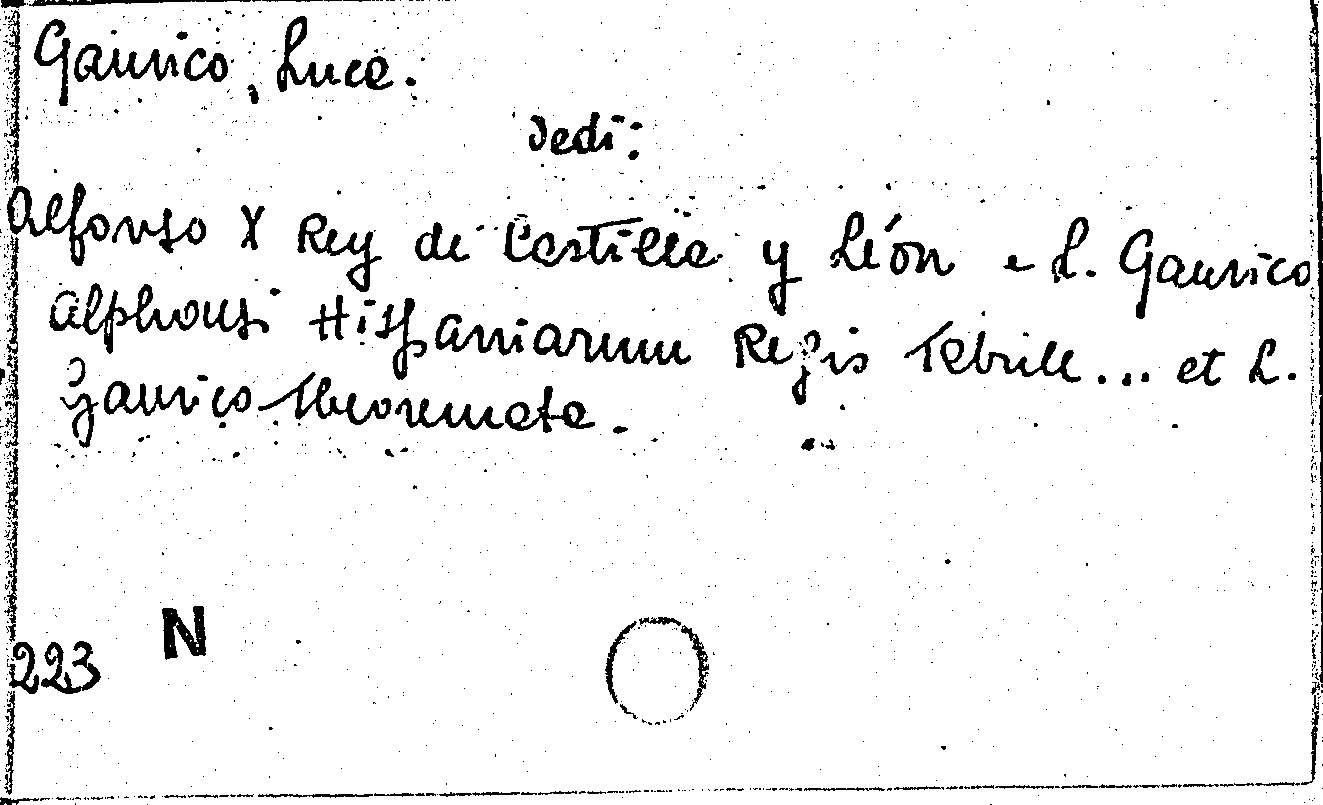 Gaurico, Luca.
Vedi:
Alfonso X Rey de Castilla y León e L. Gaurico
Alphonsi Hispaniarum Regis Tabulae... et L.
Gaurico Theoremata.
N
223